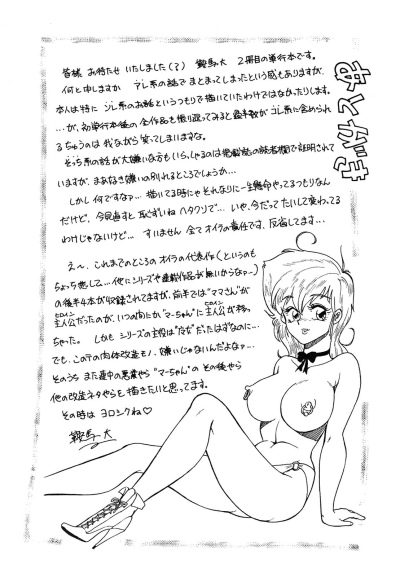 あとがき
皆様 お待たせ いたしました(?) 鞍馬大 2冊目の単行本です。
何と申しますか アレ系の話で まとまってしまったという感もありますが、
本人は特に ソレ系のお話というつもりで描いていたわけではなかったりします。
…が、初単行本後の全作品を振り返ってみると 過半数が コレ系に含められ
るちゅうのは 我ながら笑ってしまいますな。
そっち系の話が大嫌いな方もいらっしゃるのは掲載誌の読者欄で証明されて
いますが、まあ好き嫌いの別れるところでしょうか…
しかし何ですなァ… 描いてる時にゃ それなりに一生懸命やってるつもりなん
だけど、今見直すと 恥ずいね ヘタクソで… いや、今だって たいして変わってる
わけじゃないけど… すいません 全てオイラの責任です、反省してます…
え〜、これまでのところの オイラの代表作(というのも
ちょっと悲しい… 他にシリーズや連載作品が無いからなァ〜)
の後半4本が収録されてますが、前半では"ママさん"が
主人公だったのが、いつの間にか"マーちゃん"に主人公が移っ
ちゃった。 しかも シリーズの主役は
でも、このテの肉体改造モノ、嫌いじゃないんだよなァ…
そのうち また 連中の悪業やら"マーちゃん"の その後やら
他の改造ネタやらを 描きたいと思ってます。
その時は ヨロシクね♡
鞍馬大